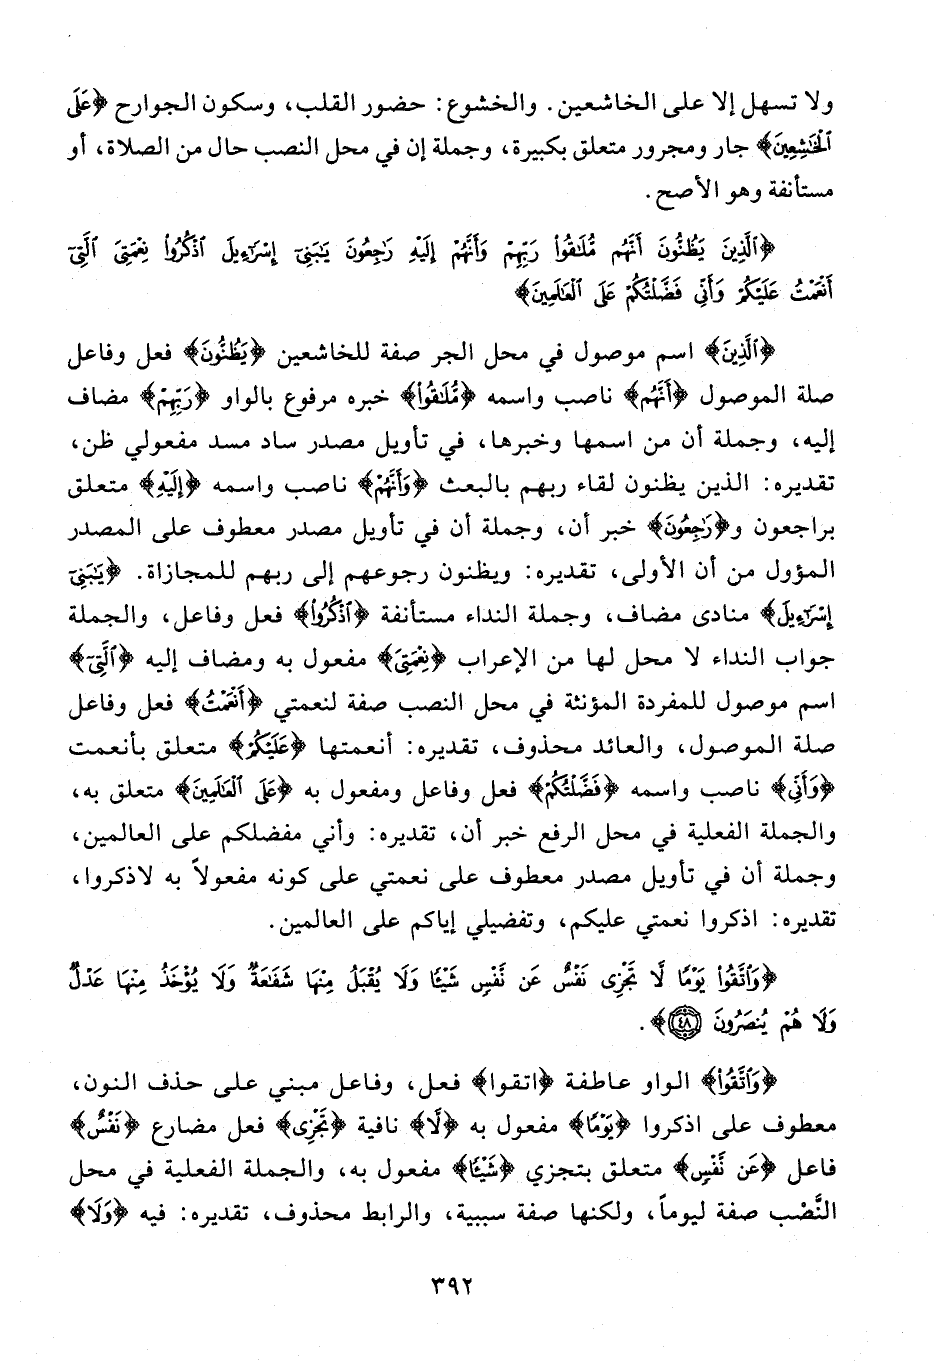 ولا تسهل إلا على الخاشعين. والخشوع: حضور القلب، وسكون الجوارح ﴿عَلَى
ٱلْخَٰشِعِينَ﴾ جار ومجرور متعلق بكبيرة، وجملة إن في محل النصب حال من الصلاة، أو
مستأنفة وهو الأصح.
﴿ٱلَّذِينَ يَظُنُّونَ أَنَّهُم مُّلَٰقُوا۟ رَبِّهِمْ وَأَنَّهُمْ إِلَيْهِ رَٰجِعُونَ يَٰبَنِىٓ إِسْرَٰٓءِيلَ ٱذْكُرُوا۟ نِعْمَتِىَ ٱلَّتِىٓ
أَنْعَمْتُ عَلَيْكُمْ وَأَنِّى فَضَّلْتُكُمْ عَلَى ٱلْعَٰلَمِينَ﴾
﴿ٱلَّذِينَ﴾ اسم موصول في محل الجر صفة للخاشعين ﴿يَظُنُّونَ﴾ فعل وفاعل
صلة الموصول ﴿أَنَّهُم﴾ ناصب واسمه ﴿مُّلَٰقُوا۟﴾ خبره مرفوع بالواو ﴿رَبِّهِمْ﴾ مضاف
إليه، وجملة أن من اسمها وخبرها، في تأويل مصدر ساد مسد مفعولي ظن،
تقديره: الذين يظنون لقاء ربهم بالبعث ﴿وَأَنَّهُمْ﴾ ناصب واسمه ﴿إِلَيْهِ﴾ متعلق
براجعون و﴿رَٰجِعُونَ﴾ خبر أن، وجملة أن في تأويل مصدر معطوف على المصدر
المؤول من أن الأولى، تقديره: ويظنون رجوعهم إلى ربهم للمجازاة. ﴿يَٰبَنِىٓ
إِسْرَٰٓءِيلَ﴾ منادى مضاف، وجملة النداء مستأنفة ﴿ٱذْكُرُوا۟﴾ فعل وفاعل، والجملة
جواب النداء لا محل لها من الإعراب ﴿نِعْمَتِىَ﴾ مفعول به ومضاف إليه ﴿ٱلَّتِىٓ﴾
اسم موصول للمفردة المؤنثة في محل النصب صفة لنعمتي ﴿أَنْعَمْتُ﴾ فعل وفاعل
صلة الموصول، والعائد محذوف، تقديره: أنعمتها ﴿عَلَيْكُمْ﴾ متعلق بأنعمت
﴿وَأَنِّى﴾ ناصب واسمه ﴿فَضَّلْتُكُمْ﴾ فعل وفاعل ومفعول به ﴿عَلَى ٱلْعَٰلَمِينَ﴾ متعلق به،
والجملة الفعلية في محل الرفع خبر أن، تقديره: وأني مفضلكم على العالمين،
وجملة أن في تأويل مصدر معطوف على نعمتي على كونه مفعولاً به لاذكروا،
تقديره: اذكروا نعمتي عليكم، وتفضيلي إياكم على العالمين.
﴿وَٱتَّقُوا۟ يَوْمًا لَّا تَجْزِى نَفْسٌ عَن نَّفْسٍ شَيْـًٔا وَلَا يُقْبَلُ مِنْهَا شَفَٰعَةٌ وَلَا يُؤْخَذُ مِنْهَا عَدْلٌ
وَلَا هُمْ يُنصَرُونَ ٤٨﴾.
﴿وَٱتَّقُوا۟﴾ الواو عاطفة ﴿اتقوا﴾ فعل، وفاعل مبني على حذف النون،
معطوف على اذكروا ﴿يَوْمًا﴾ مفعول به ﴿لَّا﴾ نافية ﴿تَجْزِى﴾ فعل مضارع ﴿نَفْسٌ﴾
فاعل ﴿عَن نَّفْسٍ﴾ متعلق بتجزي ﴿شَيْـًٔا﴾ مفعول به، والجملة الفعلية في محل
النَّصْب صفة ليوماً، ولكنها صفة سببية، والرابط محذوف، تقديره: فيه ﴿وَلَا﴾
٣٩٢